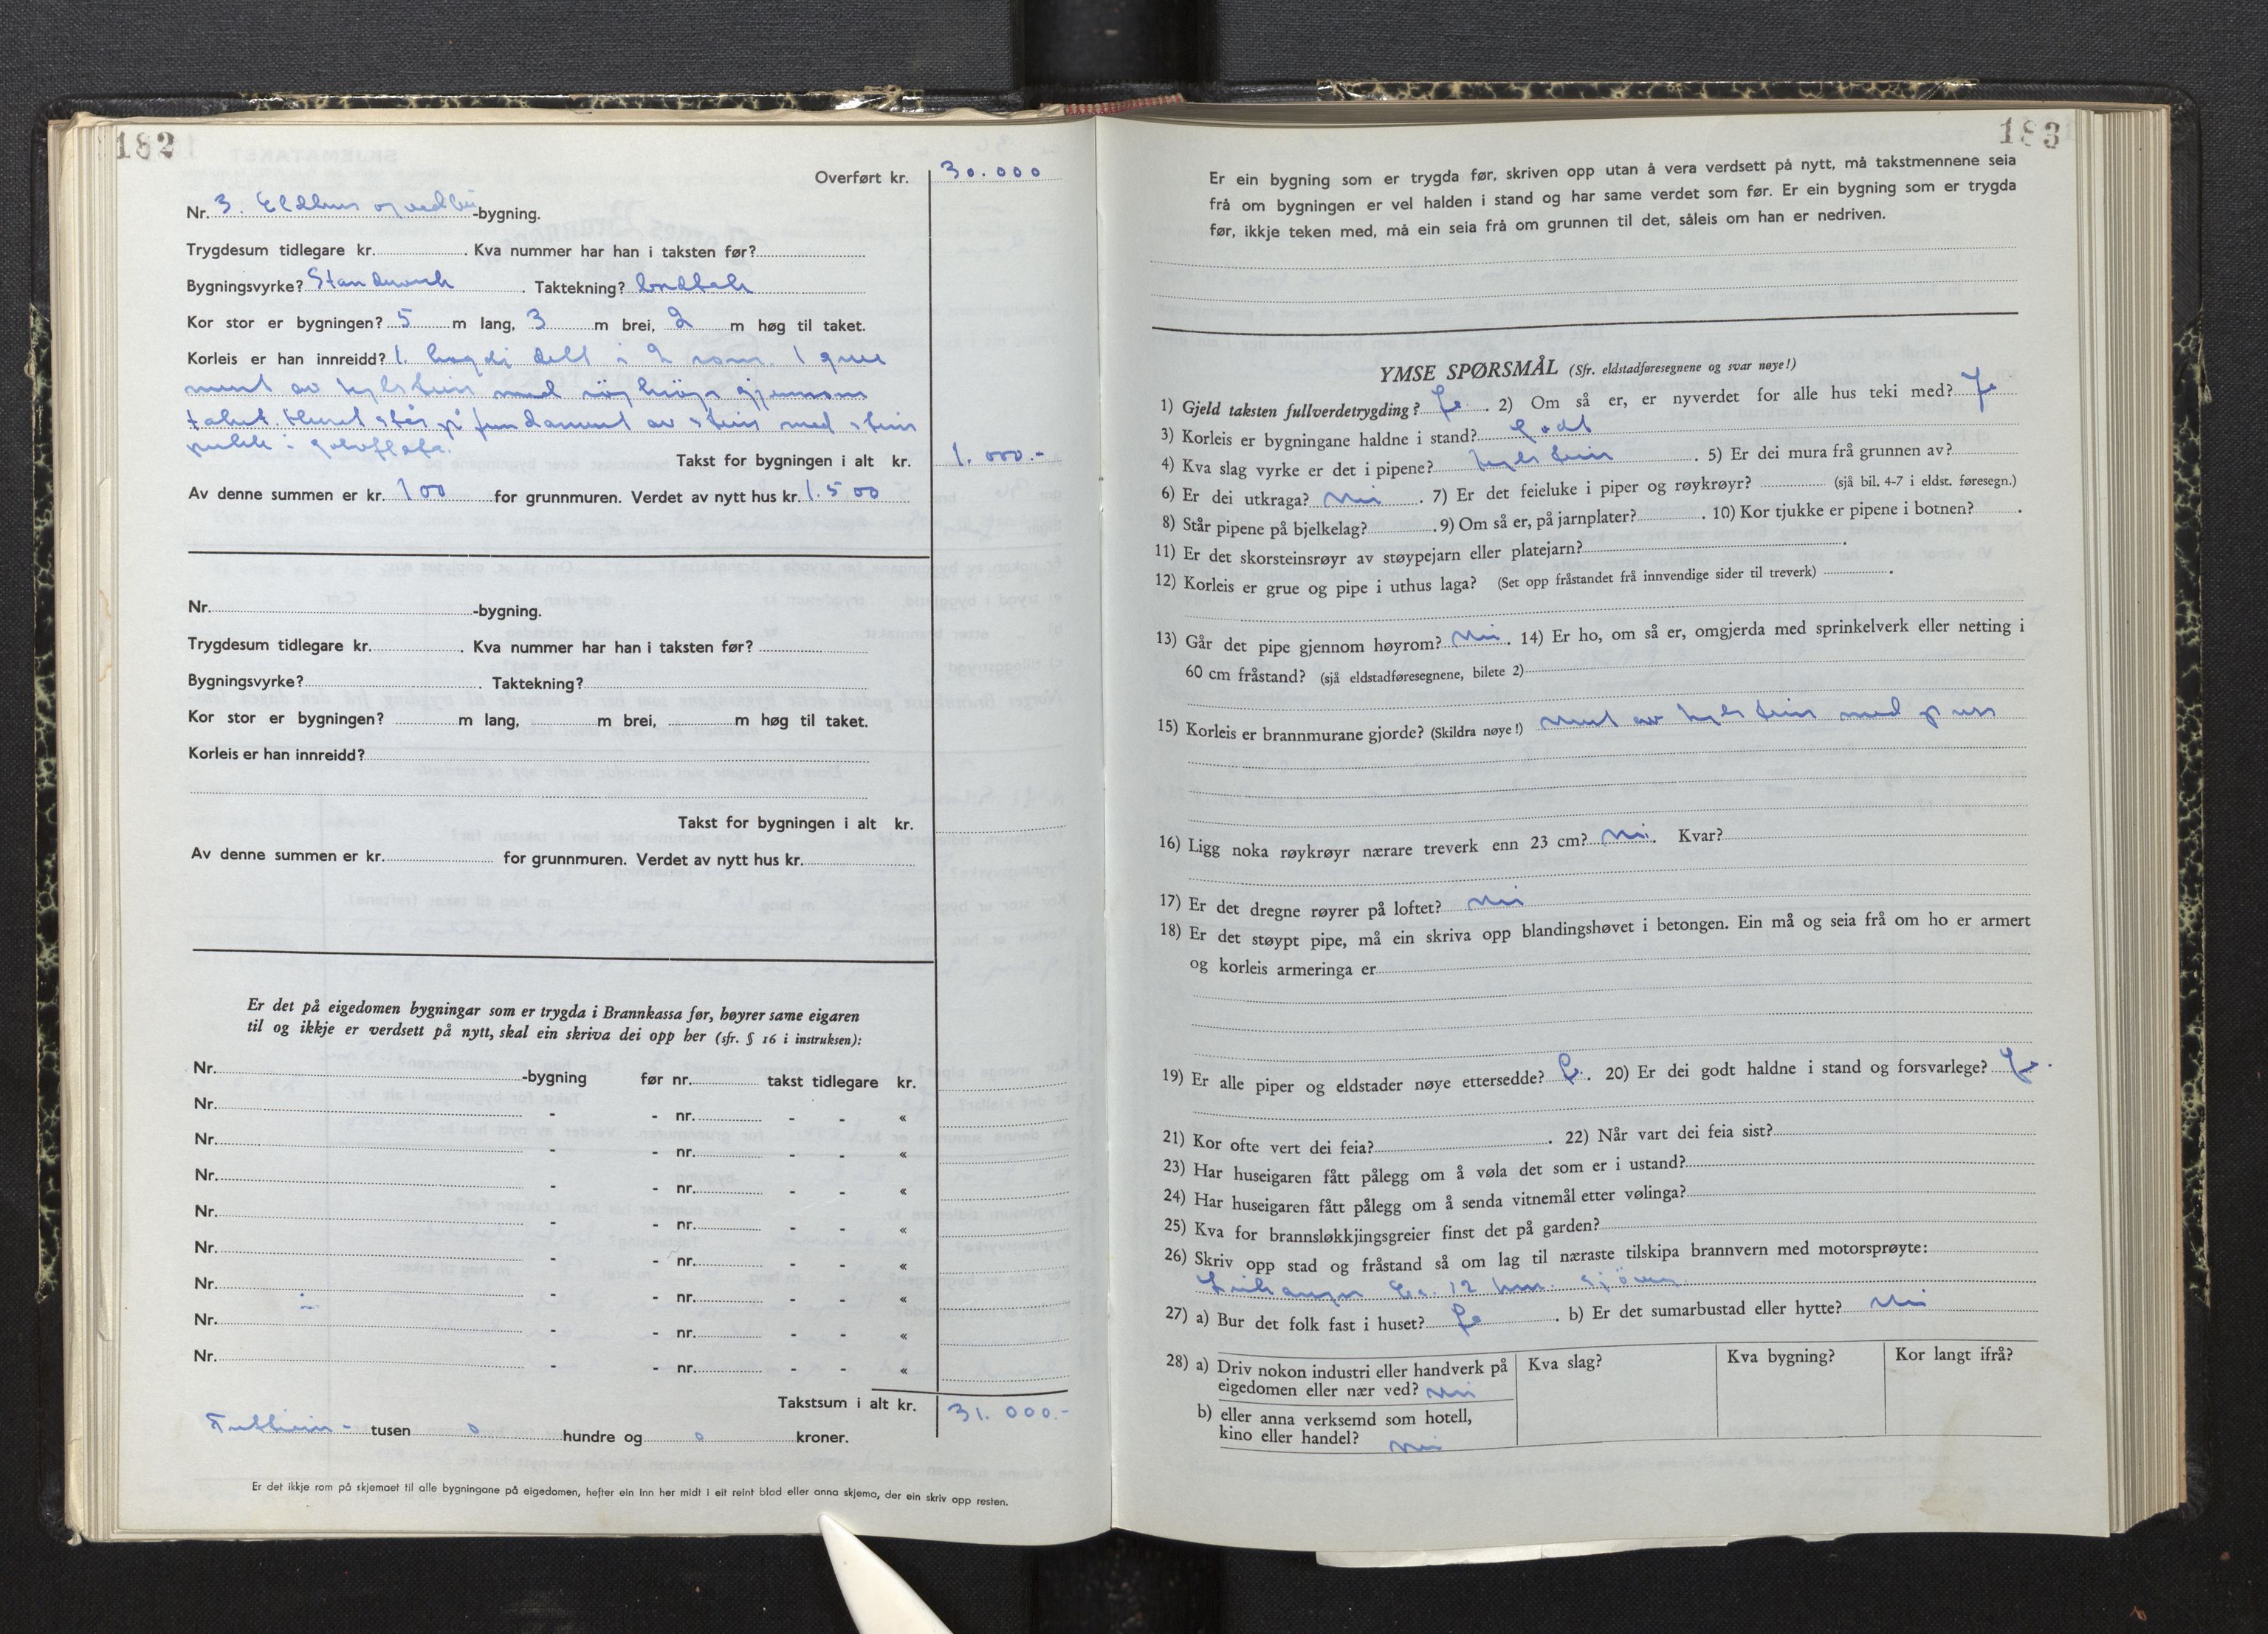 182
Overført kr. 30.000
Nr. 3. Eldhus og vedbu -bygning.
Trygdesum tidlegare kr. . Kva nummer har han i taksten før?
Bygningsvyrke? Standverk . Taktekning? bordtak
Kor stor er bygningen? 5 m lang, 3 m brei, 2 m høg til taket.
Korleis er han innreidd? 1. høgdi delt i 2 rom. 1 grue
murt av hylstein med röyk gjennom
taket. Huset står på fundament av stein med stein
i golvflata.
Takst for bygningen i alt kr. 1.000.-
Av denne summen er kr. 100 for grunnmuren. Verdet av nytt hus kr. 1.500
Nr. -bygning.
Trygdesum tidlegare kr. . Kva nummer har han i taksten før?
Bygningsvyrke? . Taktekning?
Kor stor er bygningen? m lang, m brei, m høg til taket.
Korleis er han innreidd?
Takst for bygningen i alt kr.
Av denne summen er kr. for grunnmuren. Verdet av nytt hus kr.
Er det på eigedomen bygningar som er trygda i Brannkassa før, høyrer same eigaren
til og ikkje er verdsett på nytt, skal ein skriva dei opp her (sfr. § 16 i instruksen):
Nr. -bygning før nr. takst tidlegare kr.
Nr. - - nr. - - «
Nr. - - nr. - - «
Nr. - - nr. - - «
Nr. - - nr. - - «
Nr. - - nr. - - «
Nr. - - nr. - - «
Nr. - - nr. - - «
Nr. - - nr. - - «
Takstsum i alt kr. 31.000.-
Trettiein - tusen 0 hundre og 0 kroner.
Er det ikkje rom på skjemaet til alle bygningane på eigedomen, hefter ein inn her midt i eit reint blad eller anna skjema, der ein skriv opp resten.
183
Er ein bygning som er trygda før, skriven opp utan å vera verdsett på nytt, må takstmennene seia
frå om bygningen er vel halden i stand og har same verdet som før. Er ein bygning som er trygda
før, ikkje teken med, må ein seia frå om grunnen til det, såleis om han er nedriven.
YMSE SPØRSMÅL (Sfr. eldstadføresegnene og svar nøye!)
1) Gjeld taksten fullverdetrygding? Ja . 2) Om så er, er nyverdet for alle hus teki med? Ja
3) Korleis er bygningane haldne i stand? Godt
4) Kva slag vyrke er det i pipene? hylstein . 5) Er dei mura frå grunnen av?
6) Er dei utkraga? Nei . 7) Er det feieluke i piper og røykrøyr? (sjå bil. 4-7 i eldst. føresegn.)
8) Står pipene på bjelkelag? . 9) Om så er, på jarnplater? . 10) Kor tjukke er pipene i botnen? .
11) Er det skorsteinsrøyr av støypejarn eller platejarn? .
12) Korleis er grue og pipe i uthus laga? (Set opp fråstandet frå innvendige sider til treverk) .
13) Går det pipe gjennom høyrom? Nei . 14) Er ho, om så er, omgjerda med sprinkelverk eller netting i
60 cm fråstand? (sjå eldstadføresegnene, bilete 2)
15) Korleis er brannmurane gjorde? (Skildra nøye!) murt av hylstein med puss
16) Ligg noka røykrøyr nærare treverk enn 23 cm? Nei. Kvar?
17) Er det dregne røyrer på loftet? Nei
18) Er det støypt pipe, må ein skriva opp blandingshøvet i betongen. Ein må og seia frå om ho er armert
og korleis armeringa er
19) Er alle piper og eldstader nøye ettersedde? Ja . 20) Er dei godt haldne i stand og forsvarlege? Ja.
21) Kor ofte vert dei feia? . 22) Når vart dei feia sist?
23) Har huseigaren fått pålegg om å vøla det som er i ustand?
24) Har huseigaren fått pålegg om å senda vitnemål etter vølinga?
25) Kva for brannsløkkjingsgreier finst det på garden?
26) Skriv opp stad og fråstand så om lag til næraste tilskipa brannvern med motorsprøyte:
Leikanger Ca. 12 km. sjøveg
27) a) Bur det folk fast i huset? Ja . b) Er det sumarbustad eller hytte? Nei
28) a) Driv nokon industri eller handverk på eigedomen eller nær ved? Nei
Kva slag? Kva bygning? Kor langt ifrå?
b) eller anna verksemd som hotell,
kino eller handel? Nei